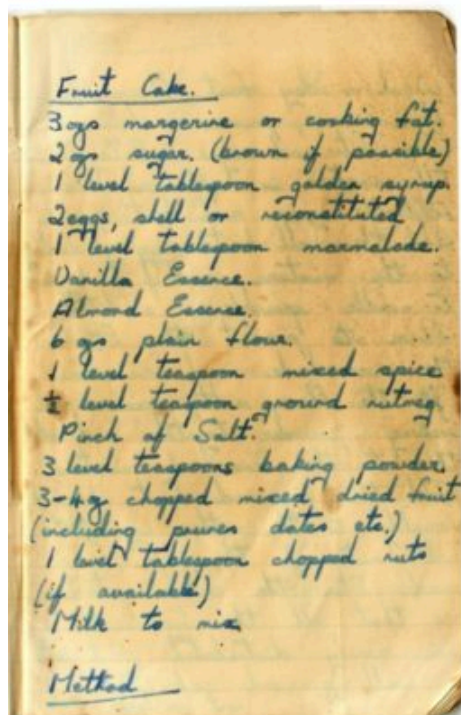 Fruit Cake.
3 ozs margerine or cooking fat.
2 ozs sugar. (brown if possible)
1 level tablespoon golden syrup.
2 eggs, shell or reconstituted
1 level tablespoon marmalade.
Vanilla Essence.
Almond Essence.
6 ozs plain flour.
1 level teaspoon mixed spice
½ level teaspoon ground nutmeg
Pinch of Salt.
3 level teaspoons baking powder.
3-4oz chopped mixed dried fruit
(including prunes dates etc.)
1 level tablespoon chopped nuts
(if available)
Milk to mix.
Method